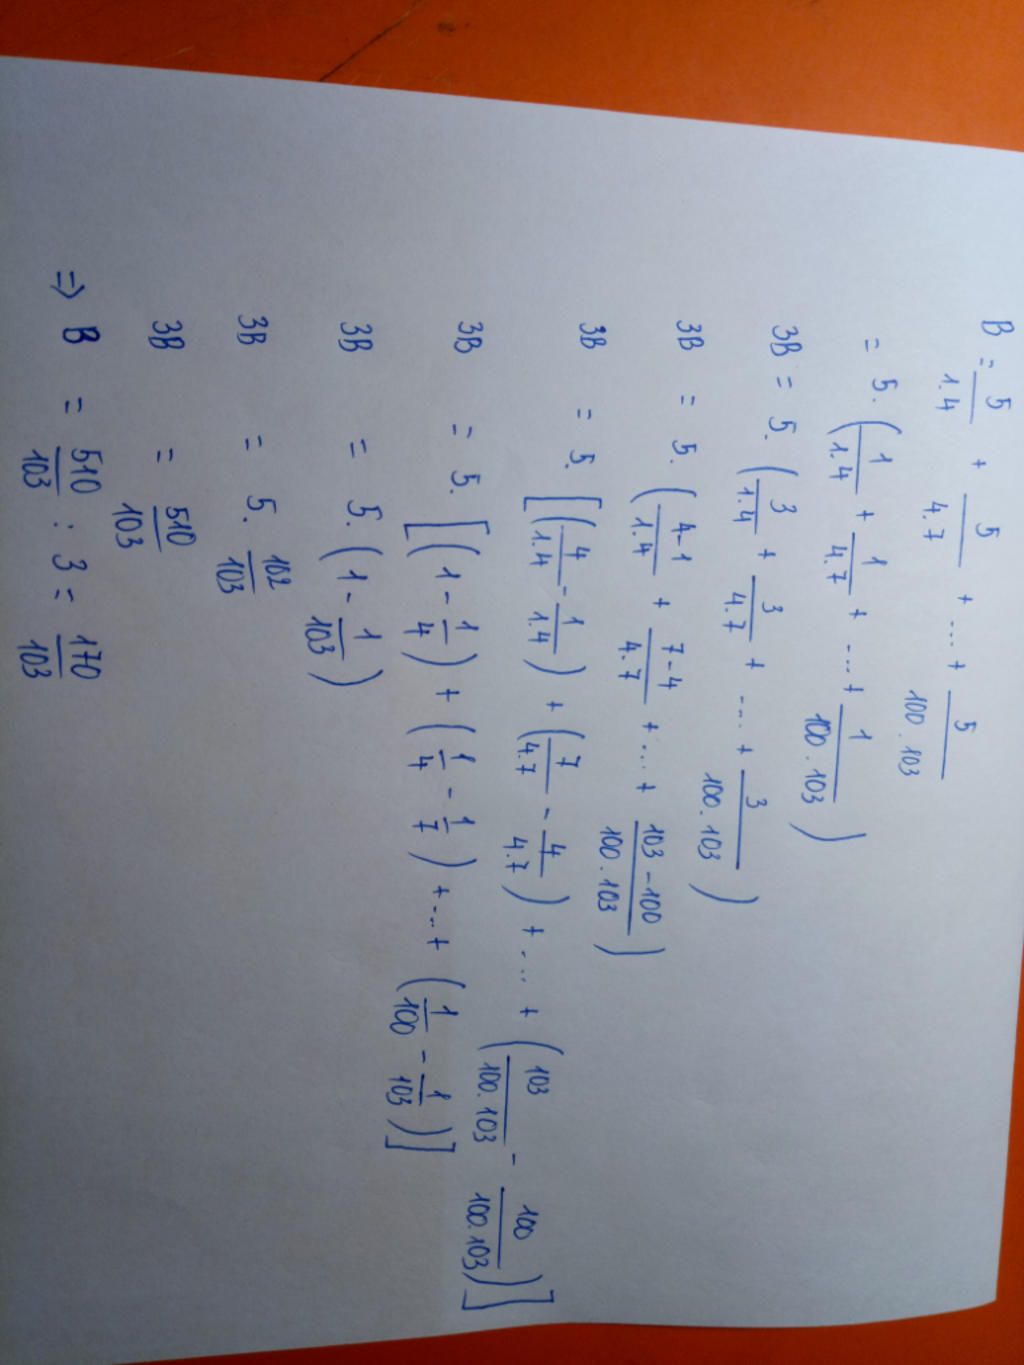 B = 5/1.4 + 5/4.7 + ... + 5/100.103
= 5. (1/1.4 + 1/4.7 + ... + 1/100.103)
3B = 5. (3/1.4 + 3/4.7 + ... + 3/100.103)
3B = 5. (4-1/1.4 + 7-4/4.7 + ... + 103-100/100.103)
3B = 5. [(4/1.4 - 1/1.4) + (7/4.7 - 4/4.7) + ... + (103/100.103 - 100/100.103)]
3B = 5. [(1 - 1/4) + (1/4 - 1/7) + ... + (1/100 - 1/103)]
3B = 5. (1 - 1/103)
3B = 5. 102/103
3B = 510/103
=> B = 510/103 : 3 = 170/103